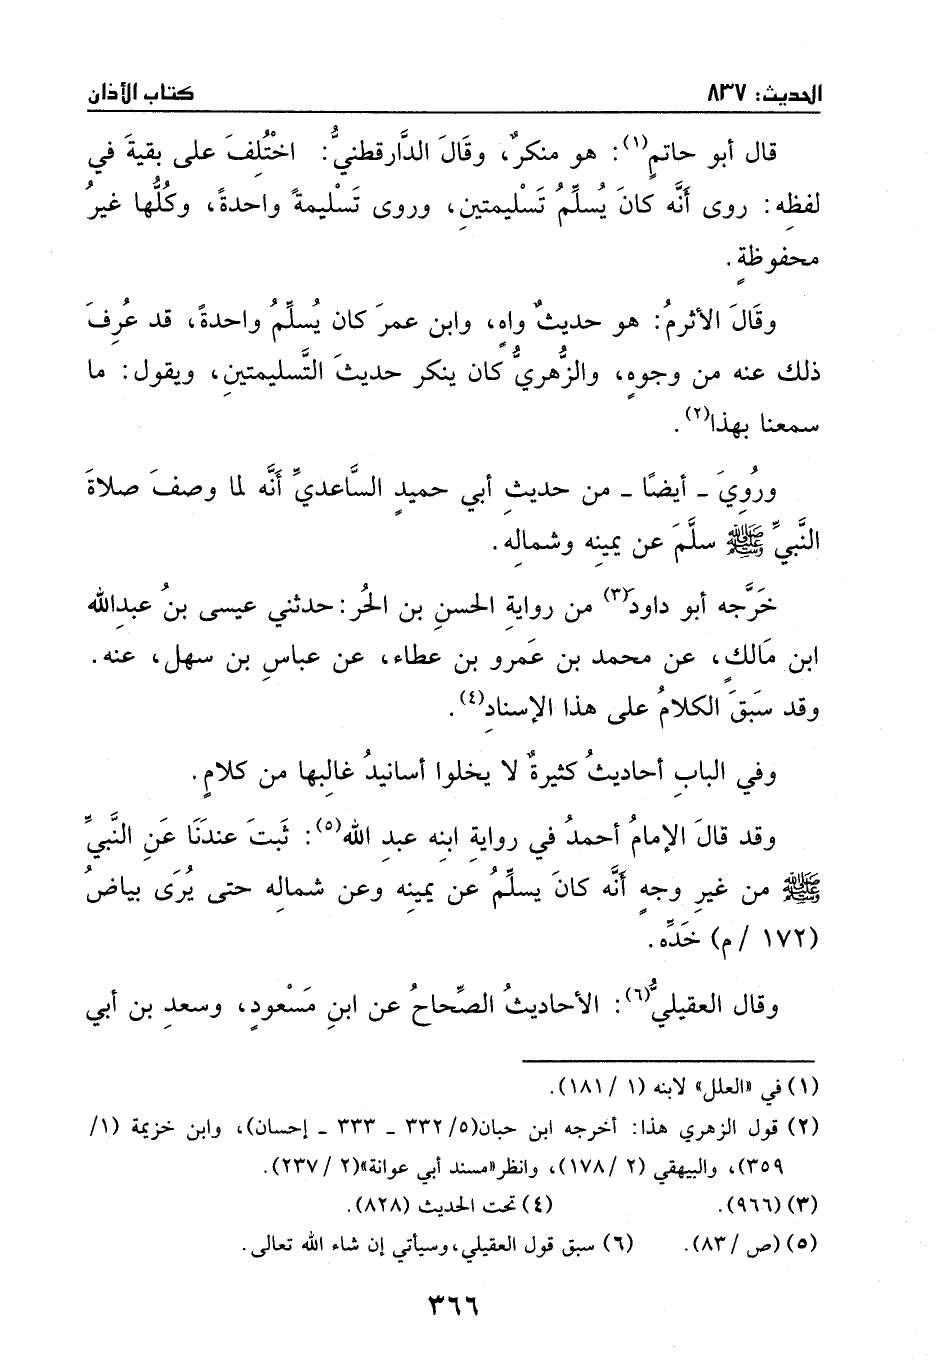 الحديث: ٨٣٧
كتاب الأذان
قال أبو حاتمٍ(١): هو منكرٌ، وقَالَ الدَّارقطنيُّ: اخْتُلِفَ على بقيةَ في
لفظِه: روى أَنَّه كانَ يُسلِّمُ تَسْليمتينِ، وروى تَسْليمةً واحدةً، وكُلُّها غيرُ
محفوظةٍ.
وقَالَ الأثرمُ: هو حديثٌ واهٍ، وابن عمرَ كان يُسلِّمُ واحدةً، قد عُرِفَ
ذلك عنه من وجوهٍ، والزُّهريُّ كان ينكر حديثَ التَّسليمتينِ، ويقول: ما
سمعنا بهذا(٢).
ورُوِيَ ـ أيضًا ـ من حديثِ أبي حميدٍ السَّاعديِّ أَنَّه لما وصفَ صلاةَ
النَّبيِّ ﷺ سلَّمَ عن يمينِه وشمالِه.
خَرَّجه أبو داودَ(٣) من روايةِ الحسنِ بن الحُر: حدثني عيسى بنُ عبدِالله
ابن مَالكٍ، عن محمد بن عَمرو بن عطاء، عن عباسِ بن سهل، عنه.
وقد سَبَقَ الكلامُ على هذا الإسنادِ(٤).
وفي البابِ أحاديثُ كثيرةٌ لا يخلوا أسانيدُ غالِبها من كلامٍ.
وقد قالَ الإمامُ أحمدُ في روايةِ ابنِه عبدِ الله(٥): ثَبَتَ عندَنَا عَنِ النَّبيِّ
ﷺ من غيرِ وجهٍ أَنَّه كانَ يسلِّمُ عن يمينِه وعن شمالِه حتى يُرَى بياضُ
(١٧٢ /م) خَدِّه.
وقال العقيليُّ(٦): الأحاديثُ الصِّحاحُ عن ابنِ مَسْعودٍ، وسعدِ بن أبي
(١) في «العلل» لابنه (١ /١٨١).
(٢) قول الزهري هذا: أخرجه ابن حبان(٥/ ٣٣٢ ـ ٣٣٣ ـ إحسان)، وابن خزيمة (١/
٣٥٩)، والبيهقي (٢ /١٧٨)، وانظر«مسند أبي عوانة»(٢ /٢٣٧).
(٣) (٩٦٦). (٤) تحت الحديث (٨٢٨).
(٥) (ص /٨٣). (٦) سبق قول العقيلي، وسيأتي إن شاء الله تعالى.
٣٦٦